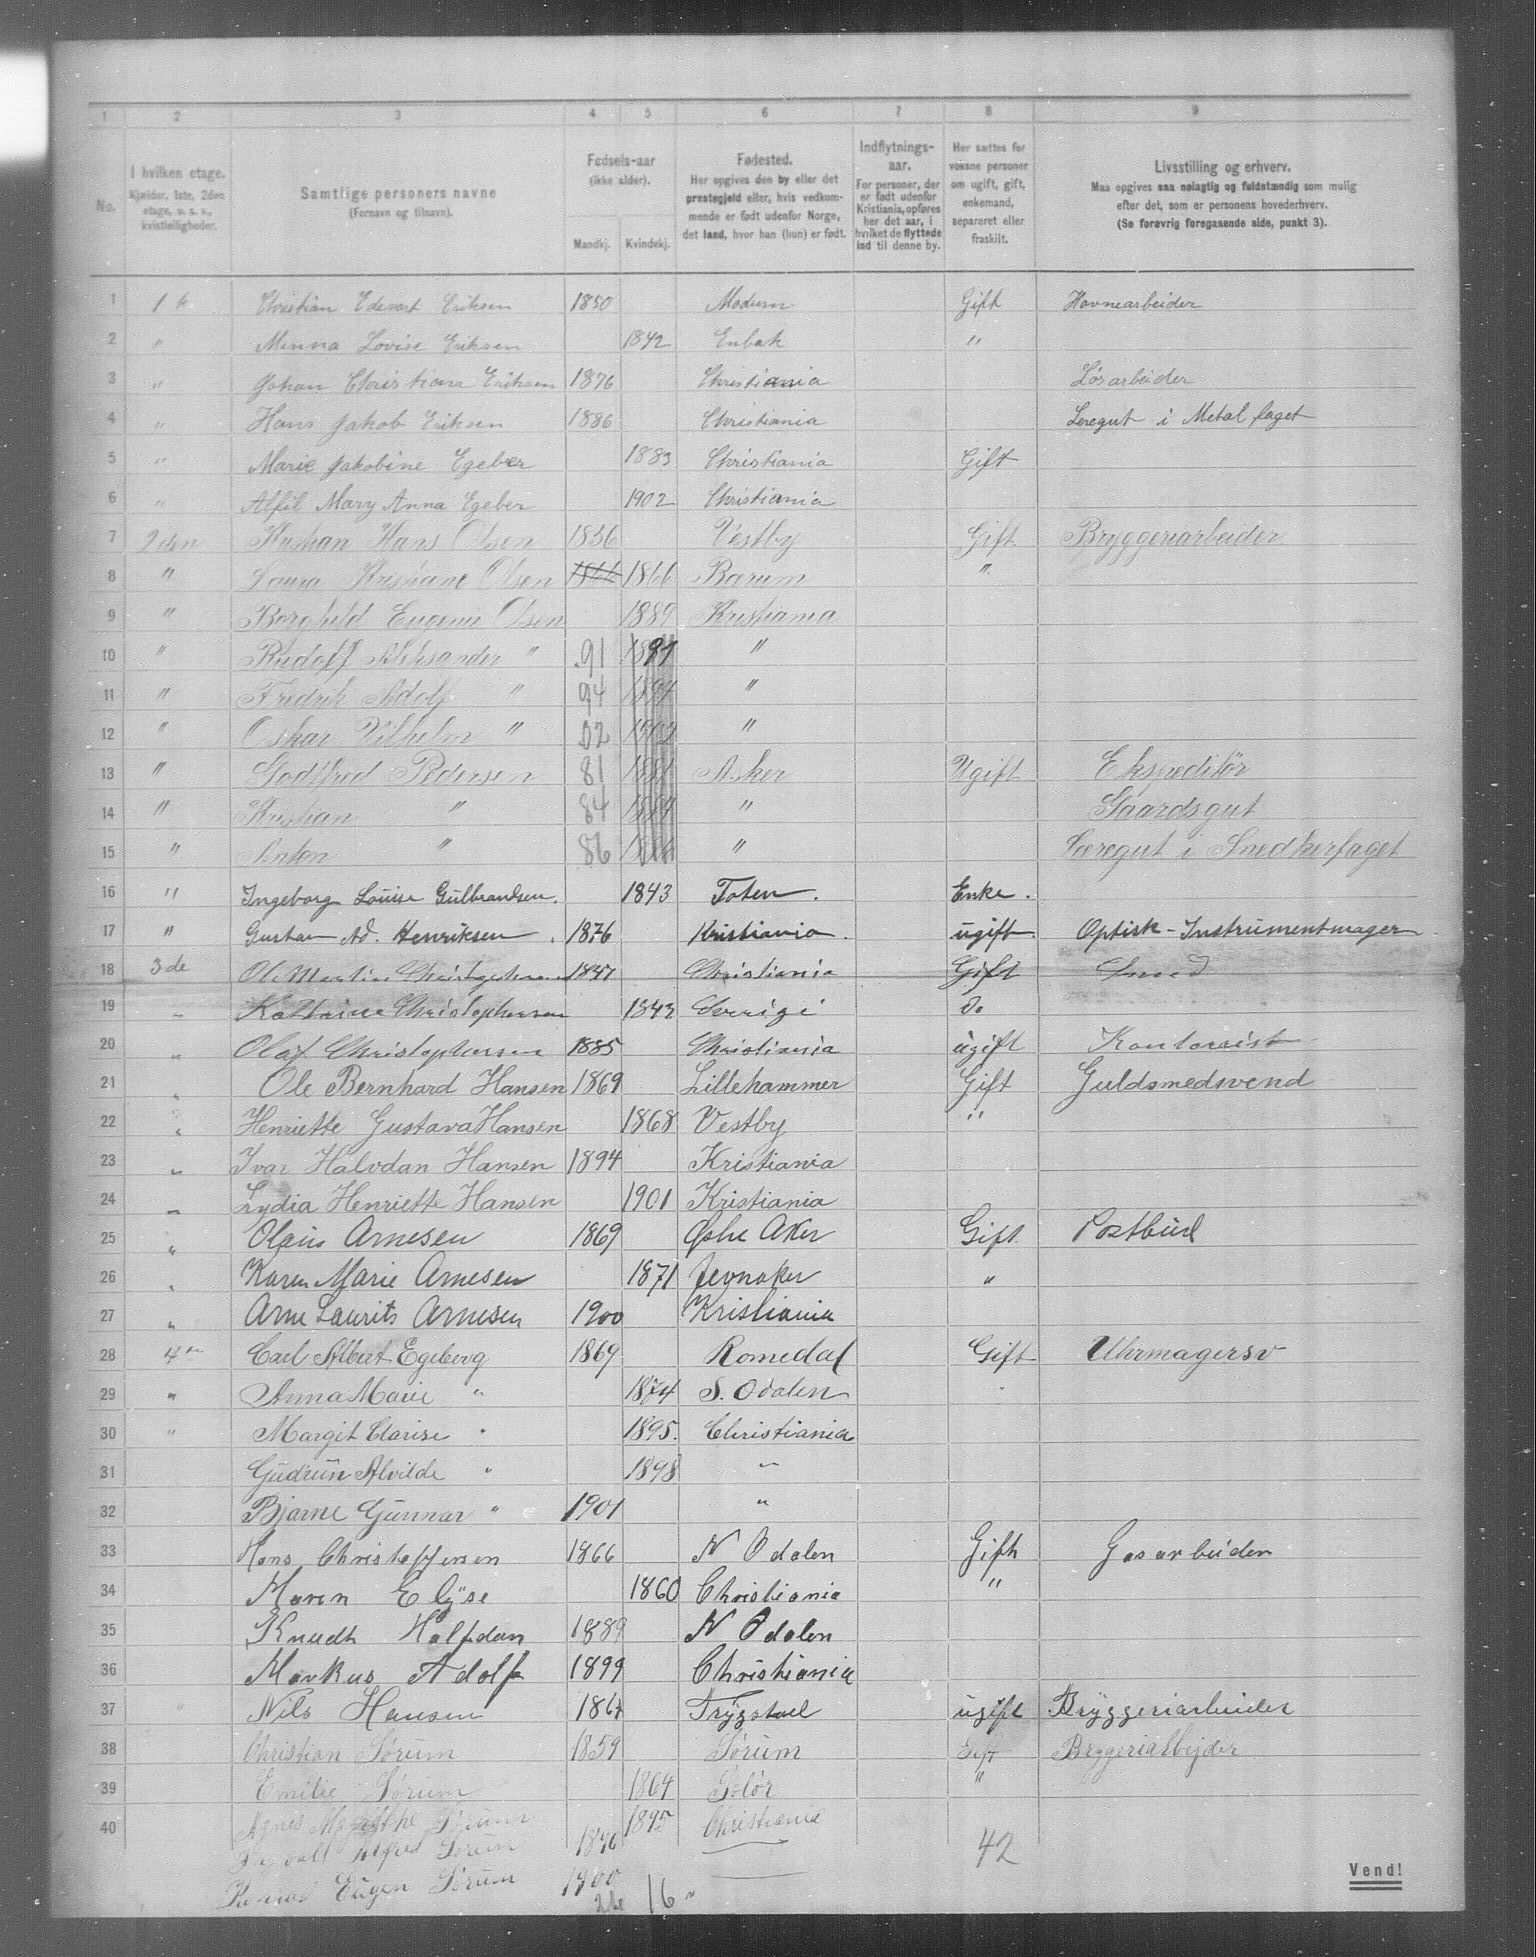 1 2 3 4 5 6 7 8 9
No. I hvilken etage. Kjælder, 1ste, 2den etage, o. s. v., kvistleiligheder. Samtlige personers navne (Fornavn og tilnavn). Fødsels-aar (ikke alder). Mandkj. Kvindekj. Fødested. Her opgives den by eller det prestegjeld eller, hvis vedkommende er født udenfor Norge, det land, hvor han (hun) er født. Indflytnings-aar. For personer, der er født udenfor Kristiania, opføres her det aar, i hvilket de flyttede ind til denne by. Her sættes for voksne personer om ugift, gift, enkemand, separeret eller fraskilt. Livsstilling og erhverv. Maa opgives saa nøiagtig og fuldstændig som mulig efter det, som er personens hovederhverv. (Se forøvrig foregaaende side, punkt 3).
1 Christian Edevart Eriksen 1850 Modum Gift Havnearbeider
2 " Minna Lovise Eriksen 1842 Enbak "
3 " Johan Christian Eriksen 1876 Christiania Løsarbeider
4 " Hans Jakob Eriksen 1886 Christiania Leregut i Metal faget
5 " Marie Jakobine Egeber 1883 Christiania Gift
6 " Alfil Mary Anna Egeber 1902 Christiania
7 2den Kristian Hans Olsen 1856 Vestby Gift Bryggeriarbeider
8 " Laura Kristiane Olsen 1866 1866 Barum "
9 " Borghild Eugenie Olsen 1889 Kristiania
10 " Rudolf Aleksander " 91 1891 "
11 " Fredrik Adolf " 94 1894 "
12 " Oskar Vilhelm " 02 1902 "
13 " Godtfred Pedersen 81 1881 Asker Ugift Ekspeditør
14 " Kristian " 84 1884 " Gaardsgut
15 " Anton " 86 1886 " Læregut i Snedkerfaget
16 " Ingeborg Louise Gulbrandsen. 1843 Toten. Enke.
17 " Gustav Ad. Henriksen. 1876 Kristiania. ugift. Optisk-Instrumentmager
18 3de Ole Martin Christophersen 1847 Christiania Gift Smed
19 " Kathrine Christophersen 1843 Sverige do
20 " Olaf Christophersen 1885 Christiania ugift Kontorist
21 " Ole Bernhard Hansen 1869 Lillehammer Gift Guldsmedsvend
22 " Henriette Gustava Hansen 1868 Vestby "
23 " Ivar Halvdan Hansen 1894 Kristiania
24 " Lydia Henriette Hansen 1901 Kristiania
25 " Olaus Arnesen 1869 Østre Aker Gift Postbud
26 " Karen Marie Arnesen 1871 Jevnaker "
27 " Arne Laurits Arnesen 1900 Kristiania
28 4de Carl Albert Egeberg 1869 Romedal Gift Uhrmagersv
29 " Anna Marie " 1874 S. Odalen "
30 " Margit Clarise " 1895. Christiania
31 Gudrun Alvilde " 1898 "
32 Bjarne Gunnar " 1901 "
33 Hans Christoffersen 1866 N Odalen Gift Gasarbeider
34 Maren Elise 1860 Christiania "
35 Knudt Halfdan 1889 N Odalen
36 Markus Adolf 1899 Christiania
37 " Nils Hansen 1864 Trygstad ugift Bryggeriarbeider
38 Christian Sørum 1859 Sørum Gift Bryggeriarbejder
39 Emilie Sørum 1864 Solør "
40 Agnes Magrethe Sørum 1895 Christiania
Alfred Sørum 1896
Eugen Sørum 1900
42
16
Vend!